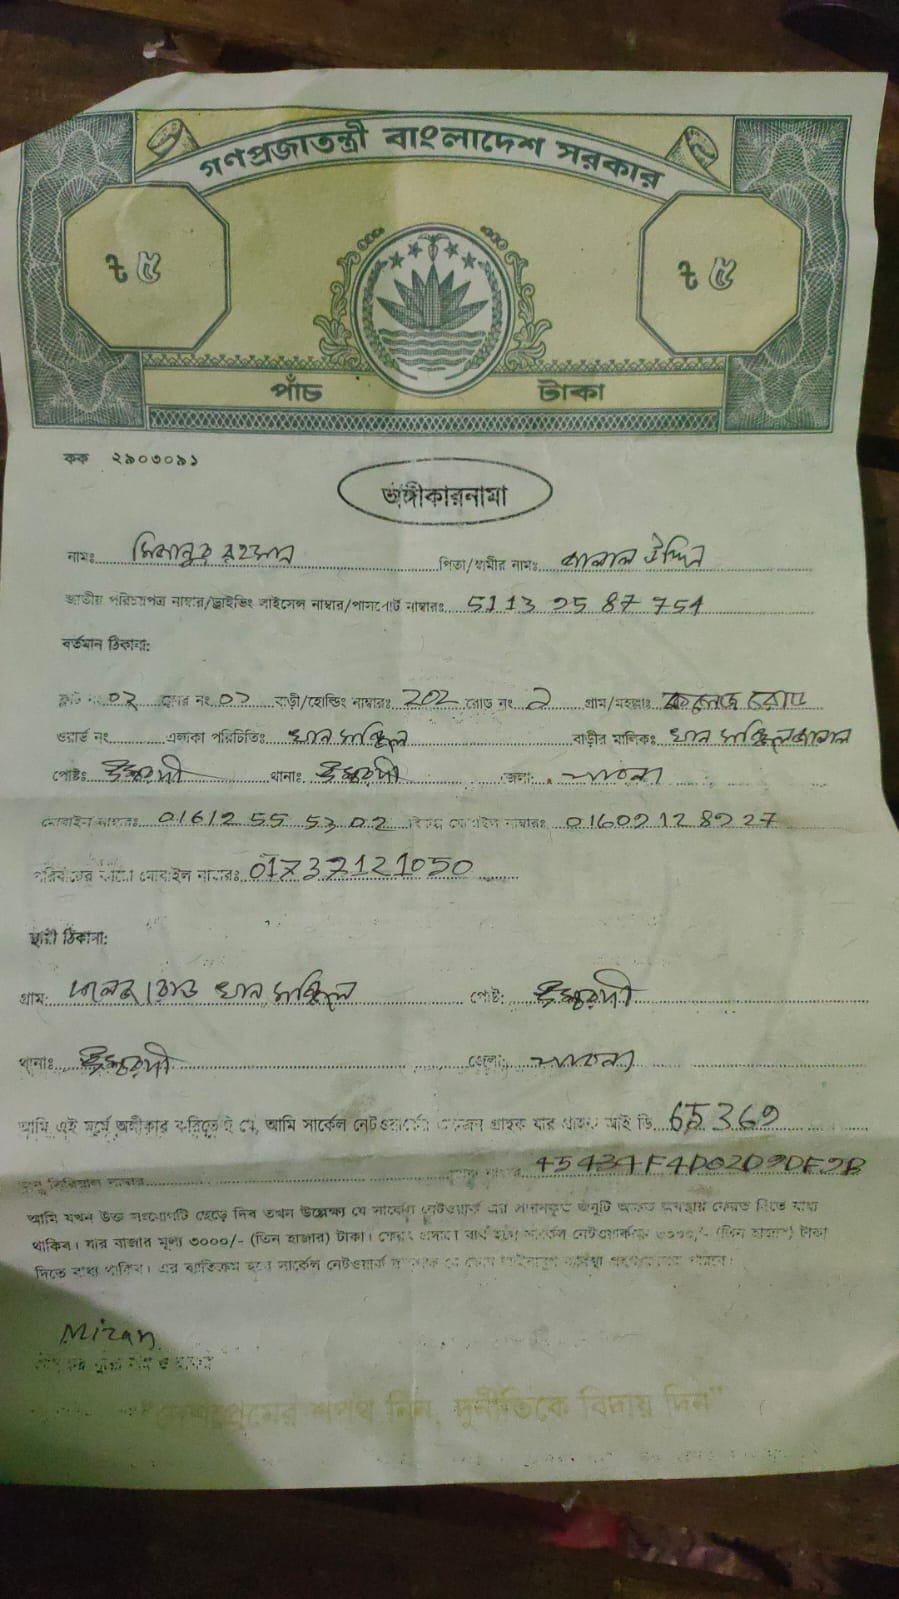 গণপ্রজাতন্ত্রী বাংলাদেশ সরকার
৳ ৫ ৳ ৫
পাঁচ টাকা
কক ২৯০৩০৯১
অঙ্গীকারনামা
নামঃ মিজানুর রহমান পিতা/স্বামীর নামঃ জালাল উদ্দিন
জাতীয় পরিচয়পত্র নাম্বার/ড্রাইভিং লাইসেন্স নাম্বার/পাসপোর্ট নাম্বারঃ 5113 25 87 754
বর্তমান ঠিকানা:
ফ্লাট নং ০২ ফ্লোর নং ০১ বাড়ী/হোল্ডিং নাম্বারঃ 202 রোড নং ৯ গ্রাম/মহল্লাঃ কলেজ রোড
ওয়ার্ড নং এলাকা পরিচিতিঃ খান মঞ্জিল বাড়ীর মালিকঃ খান মঞ্জিল
পোষ্টঃ ঈশ্বরদী থানাঃ ঈশ্বরদী জেলাঃ পাবনা
মোবাইল নাম্বারঃ 01612 55 53 02 বিকল্প মোবাইল নাম্বারঃ 01609128927
পরিবারের মোবাইল নাম্বারঃ 01737121050
স্থায়ী ঠিকানা:
গ্রাম: কলেজ রোড খান মঞ্জিল পোষ্ট: ঈশ্বরদী
থানাঃ ঈশ্বরদী জেলা: পাবনা
আমি এই মর্মে অঙ্গীকার করিতেছি যে, আমি সার্কেল নেটওয়ার্কের একজন গ্রাহক যার গ্রাহক আই ডি 65369
অনু সিরিয়াল নাম্বার
আমি যখন উক্ত সংযোগটি ছেড়ে দিব তখন উল্লেখ্য যে সার্কেল নেটওয়ার্ক এর অনুটি অক্ষত অবস্থায় ফেরত দিতে বাধ্য
থাকিব। যার বাজার মূল্য ৩০০০/- (তিন হাজার) টাকা। ফেরত প্রদানে ব্যর্থ হলে সার্কেল নেটওয়ার্ককে ৩০০০/- (তিন হাজার) টাকা
দিতে বাধ্য থাকিব। এর ব্যতিক্রম হলে সার্কেল নেটওয়ার্ক যে কোন আইনানুগ ব্যবস্থা
Mizan
"দেশপ্রেমের শপথ নিন, দুর্নীতিকে বিদায় দিন"